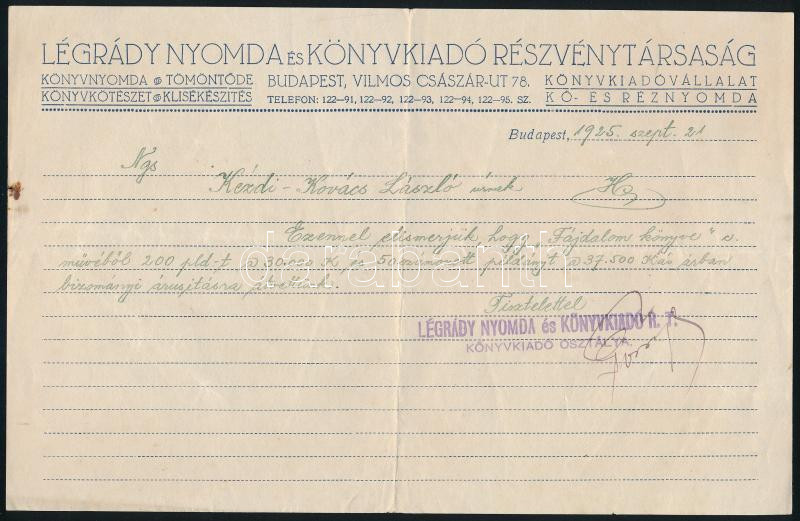 LÉGRÁDY NYOMDA ÉS KÖNYVKIADÓ RÉSZVÉNYTÁRSASÁG
KÖNYVNYOMDA TÖMÖNTÖDE
KÖNYVKÖTÉSZET KLISÉKÉSZÍTÉS
BUDAPEST, VILMOS CSÁSZÁR-UT 78.
TELEFON: 122-91, 122-92, 122-93, 122-94, 122-95. SZ.
KÖNYVKIADÓVÁLLALAT
KŐ- ÉS RÉZNYOMDA
Budapest, 1925. szept. 21
Ngs
Kézdi-Kovács László úrnak
H
Ezennel elismerjük hogy „Fájdalom könyve" c.
művéből 200 pld-t @ 30.000 K és 50 számozott példányt @ 37.500 K ás árban
bizományi árusításra átvettünk.
Tisztelettel
LÉGRÁDY NYOMDA és KÖNYVKIADÓ R. T.
KÖNYVKIADÓ OSZTÁLYA.
darabanth